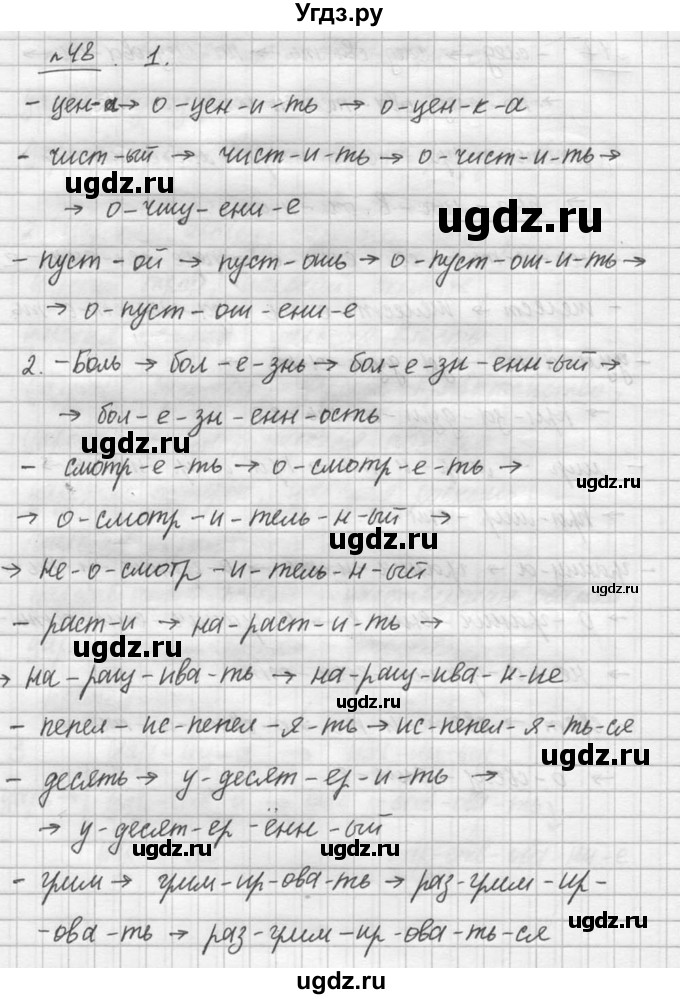 Угдз.ру
№48. 1.
- цен-а → о-цен-и-ть → о-цен-к-а
- чист-ый → чист-и-ть → о-чист-и-ть →
ugdz.ru
ugdz.ru
→ о-чищ-ени-е
- пуст-ой → пуст-ошь → о-пуст-ош-и-ть →
→ о-пуст-ош-ени-е
2. - Боль → бол-е-знь → бол-е-зн-енн-ый →
→ бол-е-зн-енн-ость
ugdz.ru
- смотр-е-ть → о-смотр-е-ть →
ugdz.ru
→ о-смотр-и-тель-н-ый →
ugdz.ru
→ не-о-смотр-и-тель-н-ый
ugdz.ru
- раст-и → на-раст-и-ть →
ugdz.ru
→ на-ращ-ива-ть → на-ращ-ива-н-ие
ugdz.ru
- пепел - ис-пепел-я-ть → ис-пепел-я-ть-ся
ugdz.ru
- десять → у-десят-ер-и-ть →
→ у-десят-ер-ённ-ый
ugdz.ru
ugdz.ru
- грим → грим-ир-ова-ть → раз-грим-ир-
ugdz.ru
-ова-ть → раз-грим-ир-ова-ть-ся
ugdz.ru